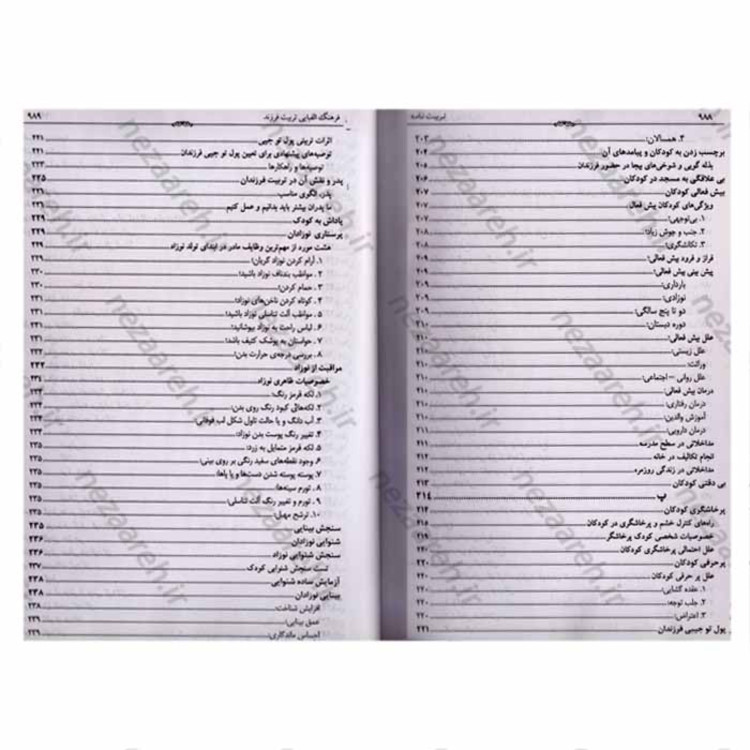 ۹۸۸ تربیت نباده
۴. همسالان: ۲۰۳
برچسب زدن به کودکان و پیامدهای آن ۲۰۴
بذله گویی و شوخی‌های بیجا در حضور فرزندان ۲۰۵
بی علاقگی به مسجد در کودکان ۲۰۶
بیش فعالی کودکان ۲۰۷
ویژگی‌های کودکان بیش فعال
۱. بی‌توجهی: ۲۰۷
۲. جنب و جوش زیاد: ۲۰۸
۳. تکانشگری: ۲۰۸
فراز و فرود بیش فعالی: ۲۰۹
پیش بینی بیش فعالی: ۲۰۹
بارداری: ۲۰۹
نوزادی: ۲۰۹
دو تا پنج سالگی: ۲۰۹
دوره دبستان: ۲۱۰
علل بیش فعالی: ۲۱۰
علل زیستی:
وراثت: ۲۱۰
علل روانی – اجتماعی: ۲۱۰
درمان بیش فعالی: ۲۱۰
درمان رفتاری: ۲۱۰
آموزش والدین: ۲۱۰
درمان دارویی: ۲۱۱
مداخلاتی در سطح مدرسه ۲۱۱
انجام تکالیف در خانه ۲۱۲
مداخلاتی در زندگی روزمره ۲۱۳
بی دقتی کودکان ۲۱۳
پ ۲۱۴
پرخاشگری کودکان ۲۱۴
راه‌های کنترل خشم و پرخاشگری در کودکان ۲۱۸
خصوصیات شخصی کودک پرخاشگر ۲۱۹
علل احتمالی پرخاشگری کودکان ۲۲۰
پرحرفی کودکان ۲۲۰
علل پر حرفی کودکان ۲۲۰
۱. عقده گشایی:
۲. جلب توجه: ۲۲۰
۳. اعتراض: ۲۲۰
پول تو جیبی فرزندان ۲۲۱
فرهنگ الفبایی تربیت فرزند ۹۸۹
اثرات تربیتی پول تو جیبی ۲۲۱
توصیه‌های پیشنهادی برای تعیین پول تو جیبی فرزندان ۲۲۱
توصیه‌ها و راهکارها ۲۲۳
پدر و نقش آن در تربیت فرزندان ۲۲۵
پدر، الگوی مناسب ۲۲۷
ما پدران بیشتر باید بدانیم و عمل کنیم
پاداش به کودک ۲۲۹
پرستاری نوزادان ۲۲۹
هشت مورد از مهم‌ترین وظایف مادر در ابتدای تولد نوزاد ۲۲۹
۱. آرام کردن نوزاد گریان: ۲۲۹
۲. مواظب بندناف نوزاد باشید: ۲۳۰
۳. حمام کردن: ۲۳۰
۴. کوتاه کردن ناخن‌های نوزاد: ۲۳۱
۵. مواظب آلت تناسلی نوزاد باشید: ۲۳۱
۶. لباس راحت به نوزاد بپوشانید: ۲۳۱
۷. حواستان به پوشک کثیف باشد: ۲۳۱
۸. بررسی درجه‌ی حرارت بدن: ۲۳۲
مراقبت از نوزاد ۲۳۳
خصوصیات ظاهری نوزاد ۲۳۴
۱. لکه قرمز رنگ: ۲۳۴
۲. لکه‌هائی کبود رنگ روی بدن: ۲۳۴
۳. آب دانگ و یا حالت تاول شکل لب فوقانی: ۲۳۴
۴. تغییر رنگ پوست بدن نوزاد: ۲۳۴
۵. لکه قرمز متمایل به زرد: ۲۳۴
۶. وجود نقطه‌های سفید رنگی بر روی بینی: ۲۳۵
۷. پوسته پوسته شدن دست‌ها و یا پاها: ۲۳۵
۸. تورم سینه‌ها: ۲۳۵
۹. تورم و تغییر رنگ آلت تناسلی: ۲۳۵
۱۰. ترشح مهبل: ۲۳۵
سنجش بینایی ۲۳۵
شنوایی نوزادان ۲۳۶
سنجش شنوایی نوزاد ۲۳۶
تست سنجش شنوائی کودک ۲۳۷
آزمایش ساده شنوایی ۲۳۸
بینایی نوزادان ۲۳۸
افزایش شناخت: ۲۳۸
عمق بینایی: ۲۳۹
احساس ماندگاری: ۲۳۹
nezaareh.ir
nezaareh.ir
nezaareh.ir
nezaareh.ir
nezaareh.ir
nezaareh.ir